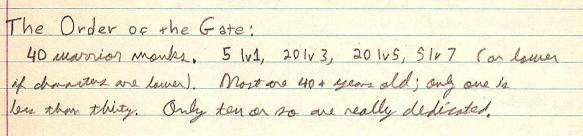 The Order of the Gate:
40 warrior monks. 5 lv1, 20 lv3, 20 lv5, 5 lv7 (or lower
if characters are lower). Most are 40+ years old; only one is
less than thirty. Only ten or so are really dedicated.